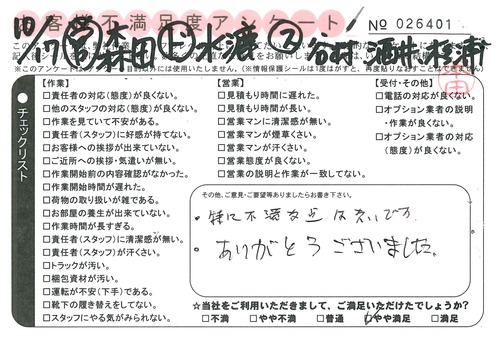 お客様不満足度アンケート
No 026401
10/7 営 森田 上 水澤 2 谷村 酒井 杉浦
※このアンケートは
以外には使用いたしません。(※情報保護シールは1度はがすと、再度貼りなおすことは
チェックリスト
【作業】
□責任者の対応(態度)が良くない。
□他のスタッフの対応(態度)が良くない。
□作業を見ていて不安がある。
□責任者(スタッフ)に好感が持てない。
□お客様への挨拶が出来ていない。
□ご近所への挨拶・気遣いが無い。
□作業開始前の内容確認がなかった。
□作業開始時間が遅れた。
□荷物の取り扱いが雑である。
□お部屋の養生が出来ていない。
□作業時間が長すぎる。
□責任者(スタッフ)に清潔感が無い。
□責任者(スタッフ)が汗くさい。
□トラックが汚い。
□梱包資材が汚い。
□運転が不安(下手)である。
□靴下の履き替えをしてない。
□スタッフにやる気がみられない。
【営業】
□見積もり時間に遅れた。
□見積もり時間が長い。
□営業マンに清潔感が無い。
□営業マンが煙草くさい。
□営業マンが汗くさい。
□営業態度が良くない。
□営業の説明と作業が一致してない。
【受付・その他】
□電話の対応が良くない。
□オプション業者の説明
・作業が良くない。
□オプション業者の対応
(態度)が良くない。
その他、ご意見・ご要望等ありましたらお書き下さい。
・特に不満な点は無いです。
ありがとうございました。
☆当社をご利用いただきまして、ご満足いただけたでしょうか?
□不満 □やや不満 □普通 □やや満足 □満足